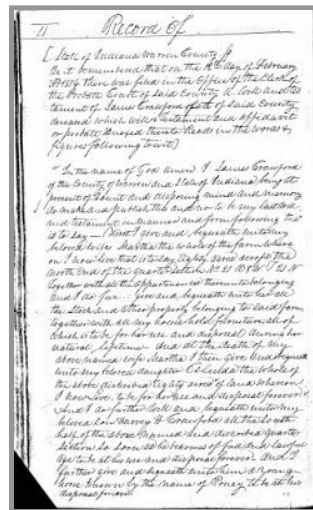 11 Record Of
State of Indiana Warren County
Be it remembered that on the day of February
there was filed in the Office of the Clerk of
the Probate Court of said County a Will and Tes
tament of James Crawford of said County
deceased which will & Testament and affidavit
or probate thereto Reads in the words &
figures following to wit
"In the name of God amen I James Crawford
of the County of Warren and State of Indiana being at
present of sound and disposing mind and memory
do make and publish this and now to be my last will
and testament in manner and form following that
is to say — First I give and bequeath unto my
beloved wife Martha the whole of the farm where
on I now live that is to say Eighty acres across the
north end of the quarter Section No 21
together with all the appurtenances thereunto belonging
and I do give and bequeath unto her all
the Stock and other property belonging to said farm
together with all my household furniture all of
which is to be for her use and disposal during her
natural lifetime And at the death of my
above named wife Martha I then give and bequeath
unto my beloved daughter the whole of
the above described Eighty acres of land whereon
I now live to be for her use and disposal forever
And I do further Will and bequeath unto my
beloved son Harvey H Crawford all the South
half of the above named and described quarter
Section so soon as he becomes of full and lawful
age to be at his use and disposal forever. And I
further give and bequeath unto him a young
horse known by the name of Poney to be at his
disposal forever